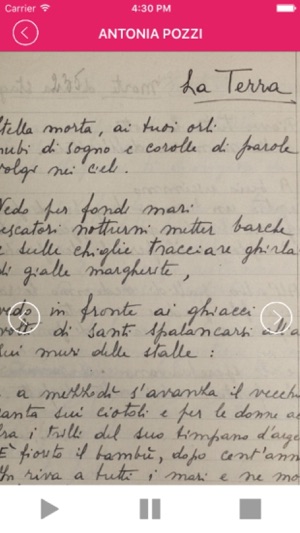 Carrier 4:30 PM
ANTONIA POZZI
La Terra
tella morta, ai tuoi orli
nubi di sogno e corolle di parole
volgi nei cieli.
Vedo per fondi mari
escatori notturni metter barche
e sulle chiglie tracciare ghirla
di gialle margherite,
vedo in fronte ai ghiacci
di santi spalancarsi all'a
sui muri delle stalle:
a mezzodì s'avanza il vecchio
anta sui ciotoli e per le donne a
fra i trilli del suo timpano d'arge
E' fiorito il bambù, dopo cent'ann
In riva a tutti i mari e ne mo